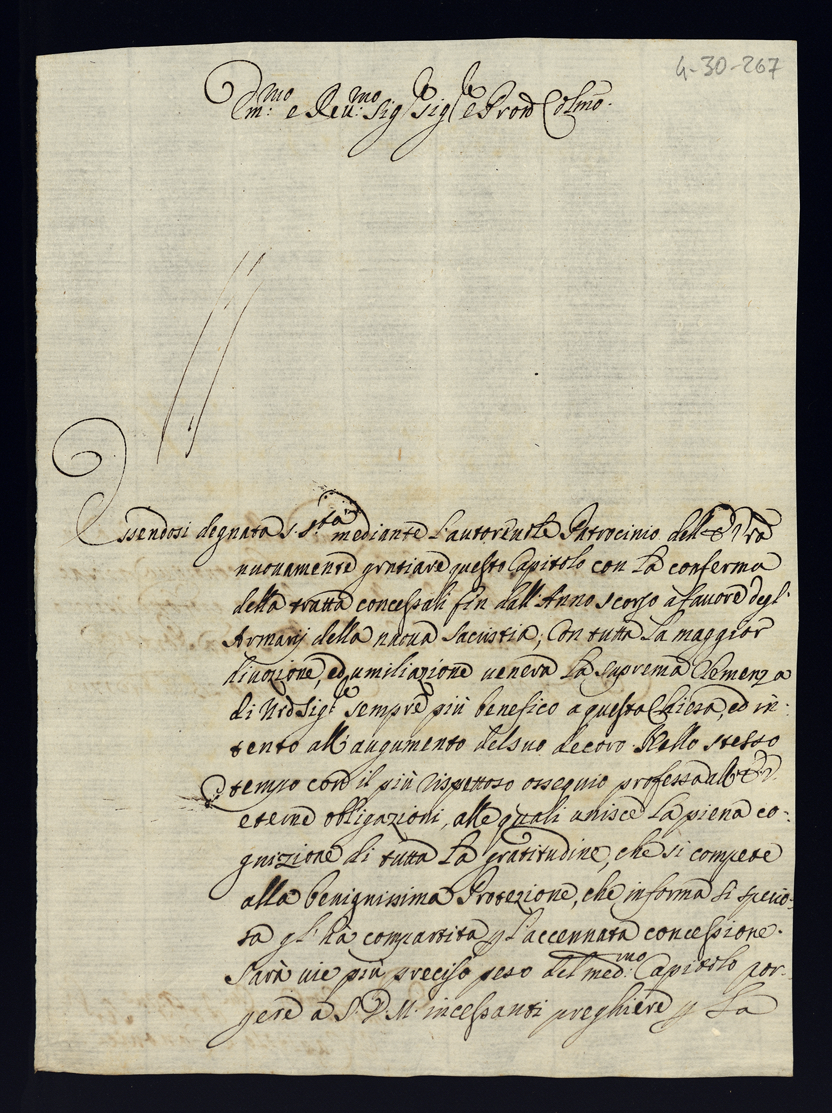 4-30-267
Em:mo e Reu:mo Sig:re Sig:re e Pron Colmo.
Essendosi degnata S. S.ta mediante l'autoreuole Patrocinio dell' E. Vra
nuouamente gratiare questo Capitolo con la conferma
della tratta concessali fin dall'Anno scorso a fauore degl'
Armarij della nuoua Sacristia; Con tutta la maggior
diuozione, ed umiliazione uenera la suprema Clemenza
di Nro Sig:re sempre più benefico a questa Chiesa, ed in-
tento all'augumento del suo decoro. Nello stesso
tempo con il più rispettoso ossequio professa all' E. V.
eterne obligazioni, alle quali unisce la piena co-
gnizione di tutta la gratitudine, che si compete
alla benignissima Protezione, che in forma sì specio-
sa gl'hà compartita p l'accennata concessione.
Sarà uie più preciso peso del med:mo Capitolo por-
gere à S. D. M. incessanti preghiere p la